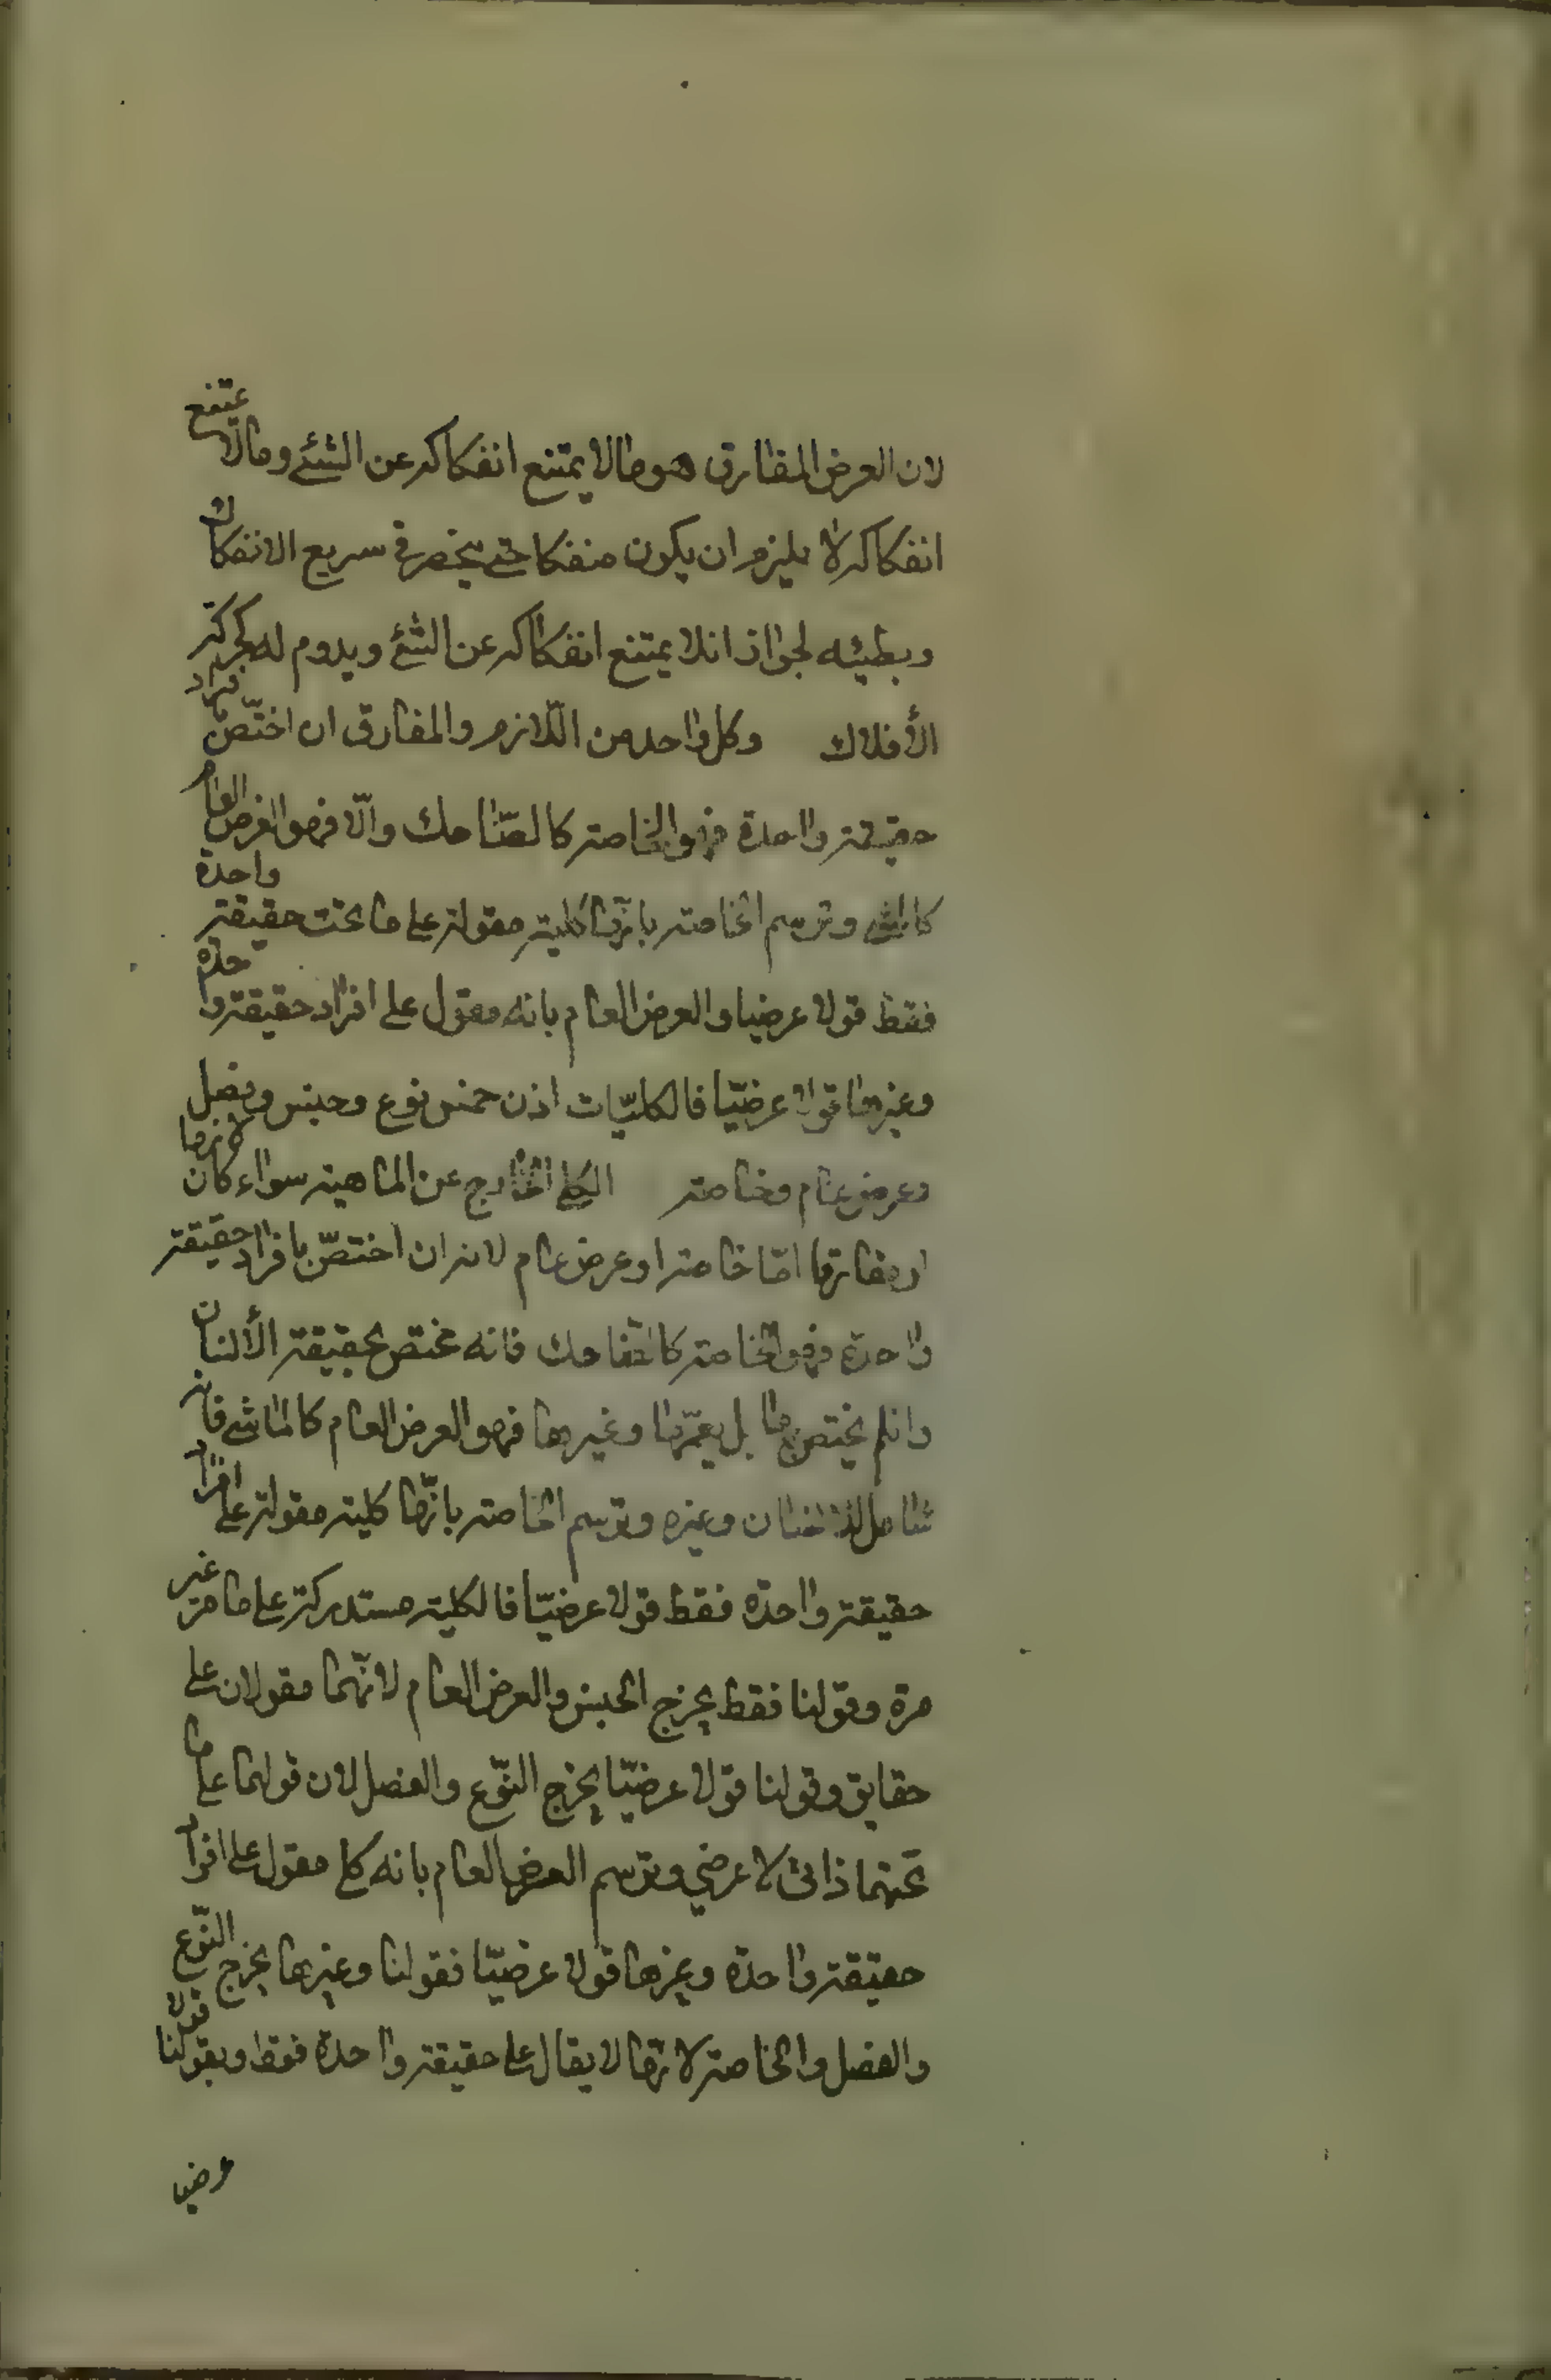 لان العرض المفارق هو ما لا يمتنع انفكاكه عن الشئ وما لا يمتنع
انفكاكه لا يلزم ان يكون منفكا حتى ينحصر في سريع الانفكاك
وبطيئه لجواز ان لا يمتنع انفكاكه عن الشئ ويدوم له كحركة
الأفلاك وكل واحد من اللّازم والمفارق ان اختصّ بافراد
حقيقة واحدة فهو الخاصة كالضّاحك والّا فهو العرض العام
كالماشي وترسم الخاصة بانّها كلية مقولة على ما تحت حقيقة واحدة
فقط قولا عرضيا والعرض العام بانه مقول على افراد حقيقة واحدة
وغيرها قولا عرضيّا فالكليّات اذن خمس نوع وجنس وفصل
وعرض عام وخاصة الكلي الخارج عن الماهية سواء كان لازما
او مفارقا امّا خاصة او عرض عام لانه ان اختصّ بافراد حقيقة
واحدة فهو الخاصة كالضاحك فانه مختص بحقيقة الأنسان
وان لم يختص بها بل يعمّها وغيرها فهو العرض العام كالماشي فانه
شامل للانسان وغيره وترسم الخاصة بانّها كلية مقولة على افراد
حقيقة واحدة فقط قولا عرضيّا فالكلية مستدركة على ما مر غير
مرة وقولنا فقط يخرج الجنس والعرض العام لانّهما مقولان على
حقايق وقولنا قولا عرضيّا يخرج النّوع والفصل لان قولهما على ما
تحتهما ذاتي لا عرضي وترسم العرض العام بانه كلي مقول على افراد
حقيقة واحدة وغيرها قولا عرضيّا فقولنا وغيرها يخرج النّوع
والفصل والخاصة لانها لا يقال على حقيقة واحدة فقط وبقولنا قولا
عرضيا